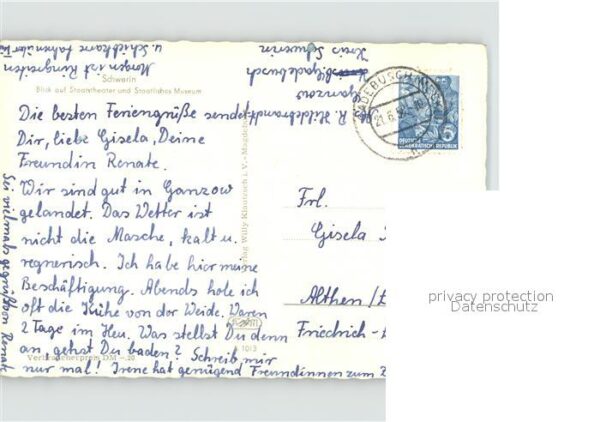 Morgen ist Ringreiten
u. Schiebkarre fahren über
Kreis Schwerin
Gadebusch
Ganzow
R. Hildebrandt
Schwerin
Blick auf Staatstheater und Staatliches Museum
GADEBUSCH
21.6.
DEUTSCHE
DEMOKRATISCHE REPUBLIK
5
Die besten Feriengrüße sendet
Dir, liebe Gisela, Deine
Freundin Renate.
Wir sind gut in Ganzow
gelandet. Das Wetter ist
nicht die Masche, kalt u.
regnerisch. Ich habe hier meine
Beschäftigung. Abends hole ich
oft die Kühe von der Weide. Waren
2 Tage im Heu. Was stellst Du denn
an, gehst Du baden? Schreib mir
nur mal! Irene hat genügend Freundinnen zum
Sei vielmals gegrüßt von Renate
Verbraucherpreis DM -.20
Verlag Willy Klautzsch i. V. - Magdeburg
A 1013
Frl.
Gisela
Althen /
Friedrich-
privacy protection
Datenschutz